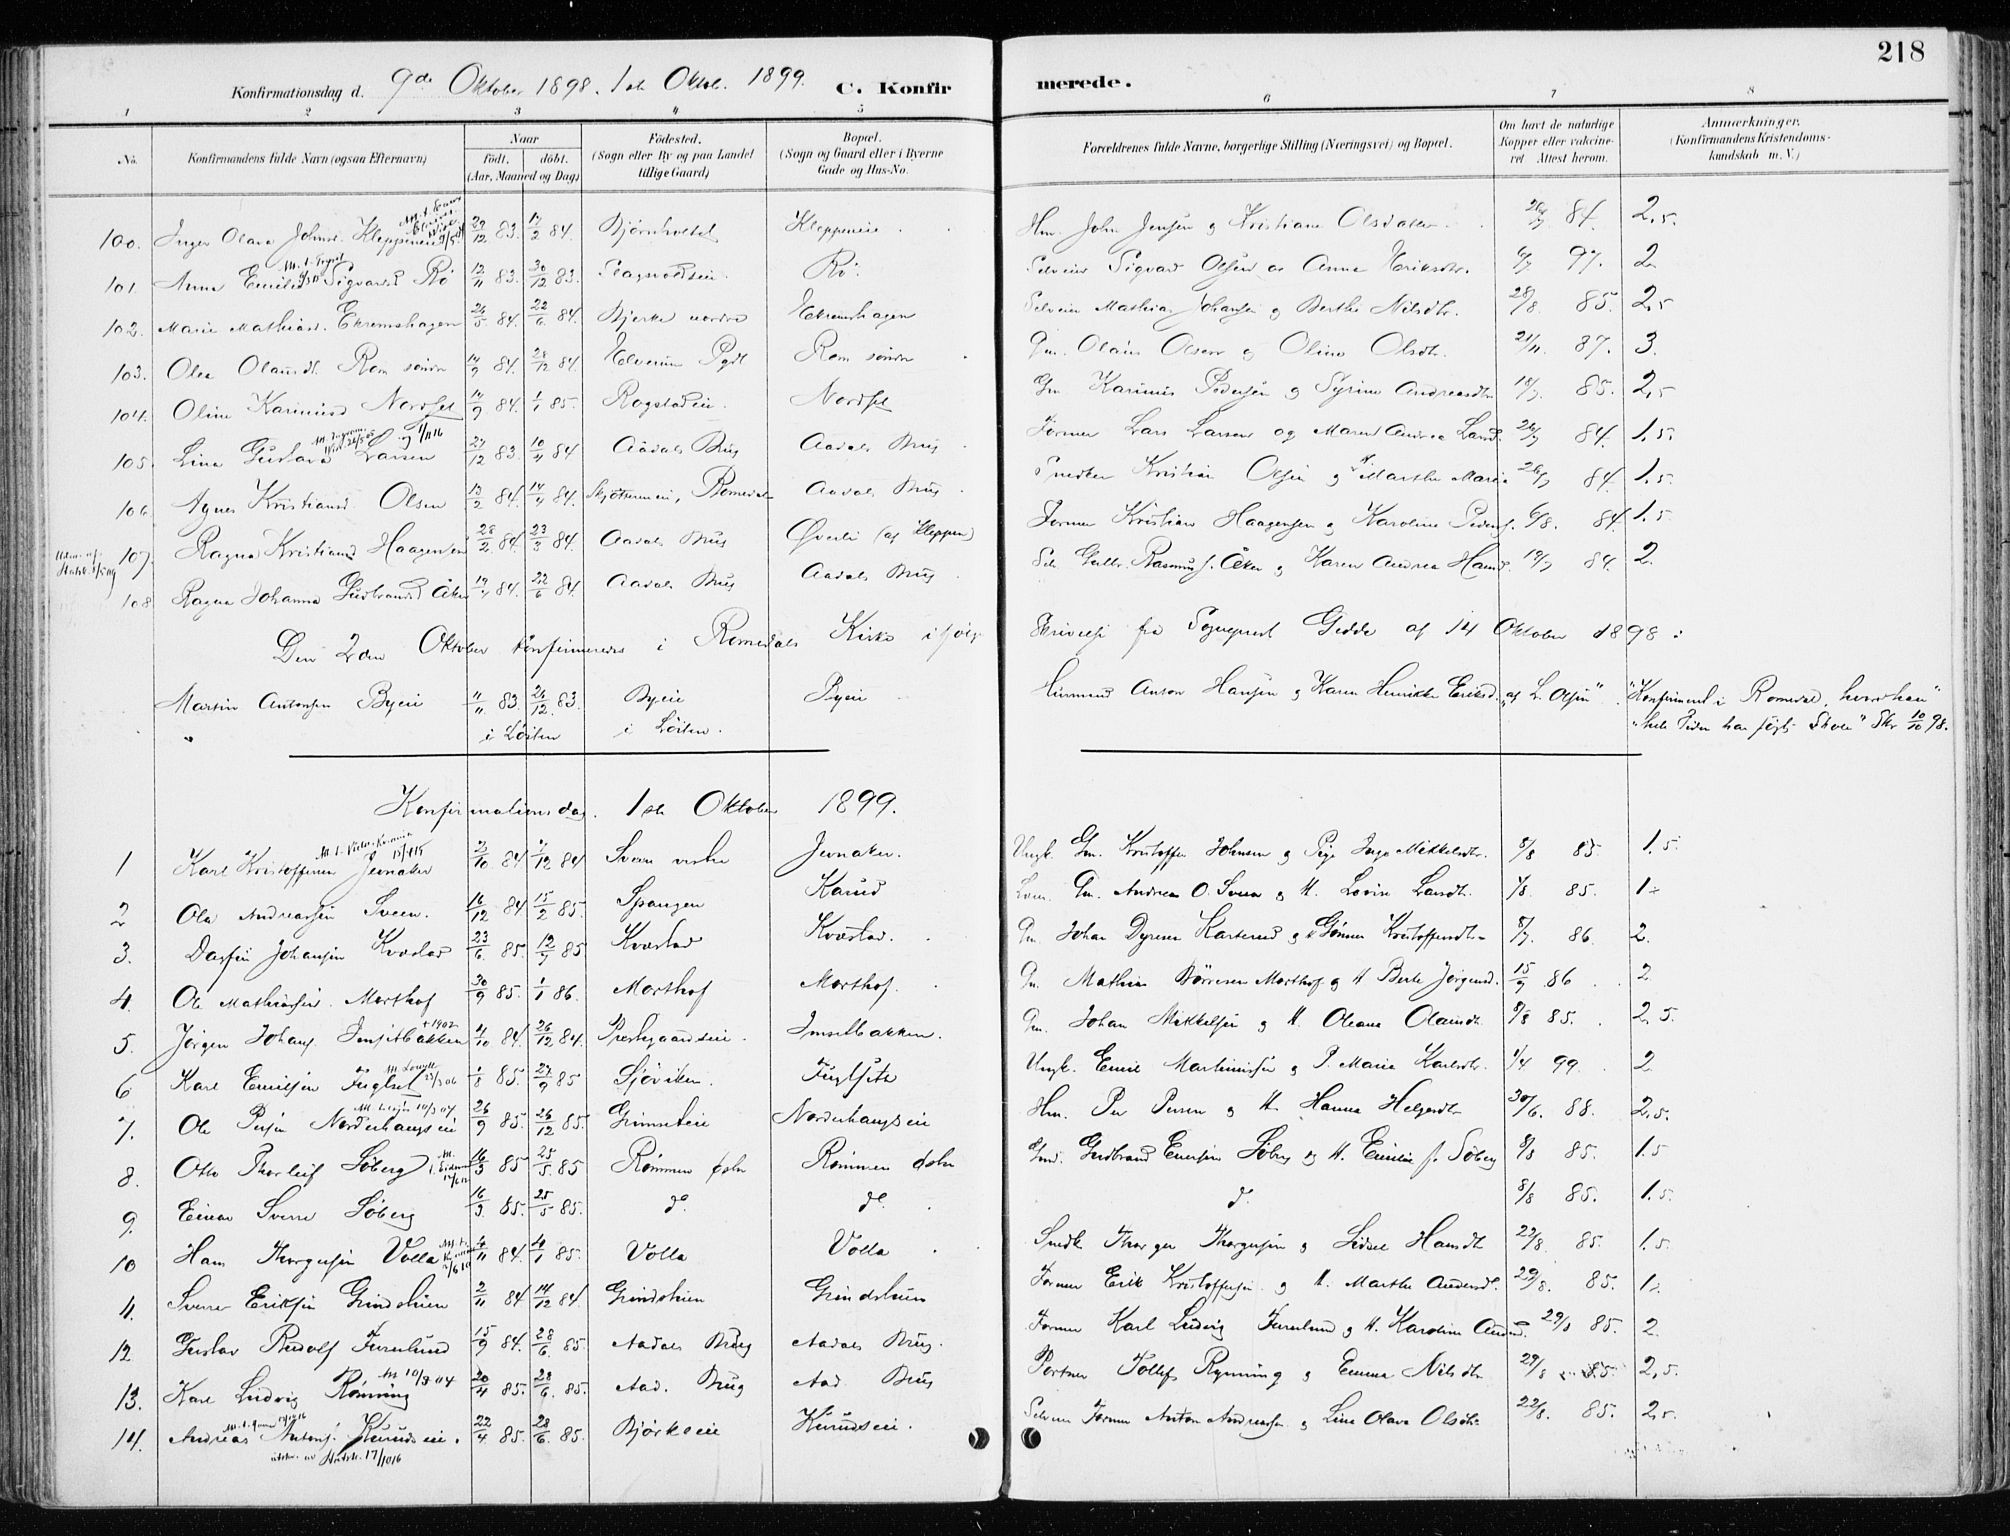 218
Konfirmationsdag d. 9de Oktober 1898. 1ste Oktob. 1899. C. Konfirmerede.
1 2 3 4 5 6 7 8
No. Konfirmandens fulde Navn (ogsaa Efternavn) Naar født. døbt. (Aar, Maaned og Dag) Fødested. (Sogn eller By og paa Landet tillige Gaard) Bopæl. (Sogn og Gaard eller i Byerne Gade og Hus-No. Forældrenes fulde Navne, borgerlige Stilling (Næringsvei) og Bopæl. Om havt de naturlige Kopper eller vakcineret Attest herom. Anmærkninger. (Konfirmandens Kristendomskundskab m. V.)
100. Inger Olava Johnsd. Kleppeneie 29/12 83. 17/2 84. Bjørnholtet Kleppeneie Hm. John Jensen og Kristiane Olsdatter 84. 2,5.
101. Anna Emilie Sigvardsd. Rø 12/11 83. 30/12 83. Rø. Selveier Sigvard Olsen og Anne Eriksdtr. 6/7 97. 2
102. Marie Mathiasd. Ekremshagen 26/5 84. 22/6 84. Bjerke nordre Ekremshagen Selveier Mathias Johansen og Berthe Nilsdtr. 28/8 85. 2,5
103. Olea Olausdt. Rom søndre 14/9 84. 28/12 84. Elverum Pgdl Rom søndre Gm. Olaus Olsen og Oline Olsdtr. 21/11 87. 3.
104. Oline Karinusd Nordset 14/9 84. 1/1 85. Rogstadeie. Nordset Gm Karinus Pedersen og Syrine Andreasdtr 18/7 85. 2,5
105. Lina Gustava Larsen 27/12 83. 10/4 84 Aadals Brug Aadals Brug Former Lars Larsen og Maren Andrea Larsd. 26/7 84. 1,5.
106. Agnes Kristiansd. Olsen 13/2 84. 14/4 84. Romedal Aadals Brug Snedker Kristian Olsen og Marthe Marie 26/7 84. 1,5.
107. Ragna Kristiansd Haagensen 28/2 84. 23/3 84. Aadals Brug Øverli (af Kleppen) Former Kristian Haagensen og Karoline Pedersd. 6/8. 84. 1,5.
108. Ragna Johanna Gudbrandsd Aker 19/4 84. 22/6 84. Aadals Brug Aadals Brug Gulbr. Rasmuss. Aker og Karen Andrea Hansd. 19/7 84. 2.
Den 2den Oktober konfirmeredes i Romedals Kirke ifølge Skrivelse fra Sogneprest Gedde af 14 Oktober 1898:
Martin Antonsen Byeie 11/11 83. 26/12 83. Byeie Byeie Husmand Anton Hansen og Karen Henrikke Eriksd. "af L. Olsen". "Konfirmeret i Romedal, hvor han"
" i Løiten i Løiten. "hele Tiden har søgt Skole" Skr 10/10 98.
Konfirmationsdag. 1ste Oktober 1899.
1 Karl Kristoffersen Jevnaker 2/10 84 7/12 84 Sveen vestre Jevnaker. Ungk. Gm. Kristoffer Johnsen og Pige Inga Mikkelsdtr. 8/8 85. 1.5.
2 Ole Andreassen Sveen. 16/12 84 15/2 85. Spangen Karud Gm. Andreas O. Sveen og H. Lovise Larsdt. 7/8. 85. 1.
3. Dagfin Johansen Kvæstad 23/6 85. 12/9 85 Kvæstad Kvæstad. Gm. Johan Dyresen Karterud og Gønner Kristoffersdtr 8/7. 86. 2.
4. Ole Mathiassen. Morthof 30/9 85. 1/1 86. Morthof Morthof. Gm. Mathias Børresen Morthof og H Berte Jørgensd. 15/9 86 2
5. Jørgen Johans. Imsetbakken + 1902 4/10 84. 26/12 84. Prestegaardseie. Imsetbakken. Gm. Johan Mikkelsen og H. Oleana Olausdt. 8/8 85. 2,5.
6 Karl Emilsen Fuglset 1/8 85. 27/9 85 Sjøviken. Fuglseth Ungk. Emil Martinussen og P. Marie Karlsdtr. 1/4 99. 2
7. Ole Persen Norderhaugseie 26/9 85. 26/12 85. Grimseteie Norderhaugseie Hm. Per Persen og H. Hanna Helgesdtr 30/6. 88. 2,5.
8. Otto Thorleif Søberg 16/3 85 25/5 85 Rømmen østre Rømmen østre Gm. Gudbrand Enersen Søberg og H. Emilie f. Søberg 8/8 85. 1.5
9. Einar Sverre Søberg 16/3. 85. 25/5 85. do. do. d. 8/8 85. 1.5.
10 Hans Thorgersen Volla 4/11 84. 4/1 85. Volla Volla Smed Thorger Thorgersen og Sidsel Hansdt 23/8. 85. 1.5.
11. Sverre Eriksen Grindstuen 2/11 84 14/12 84. Grindstuen Grindstuen Former Erik Kristoffersen og H. Marthe Andersdt. 29/8. 85. 1.
12 Gustav Rudolf Furulund 15/9 84. 28/6 85. Aadals Brug Aadals Brug. Former Karl Ludvig Furulund og H. Karoline 29/8 85. 2.
13. Karl Ludvig Rønning 20/4 85. 28/6. 85. Aad. Brug Aad Brug Portner Tollef Rynning og Emma Nilsdtr 29/8 85. 2,5.
14. Andreas Antons. Kurudseie. 22/4 85. 28/6. 85. Bjørkseie Kurudseie. Selveier Former Anton Andreasen og Lina Olava Olsdtr 22/8. 85. 2,5.
utskr. av Statsk. 17/10 16